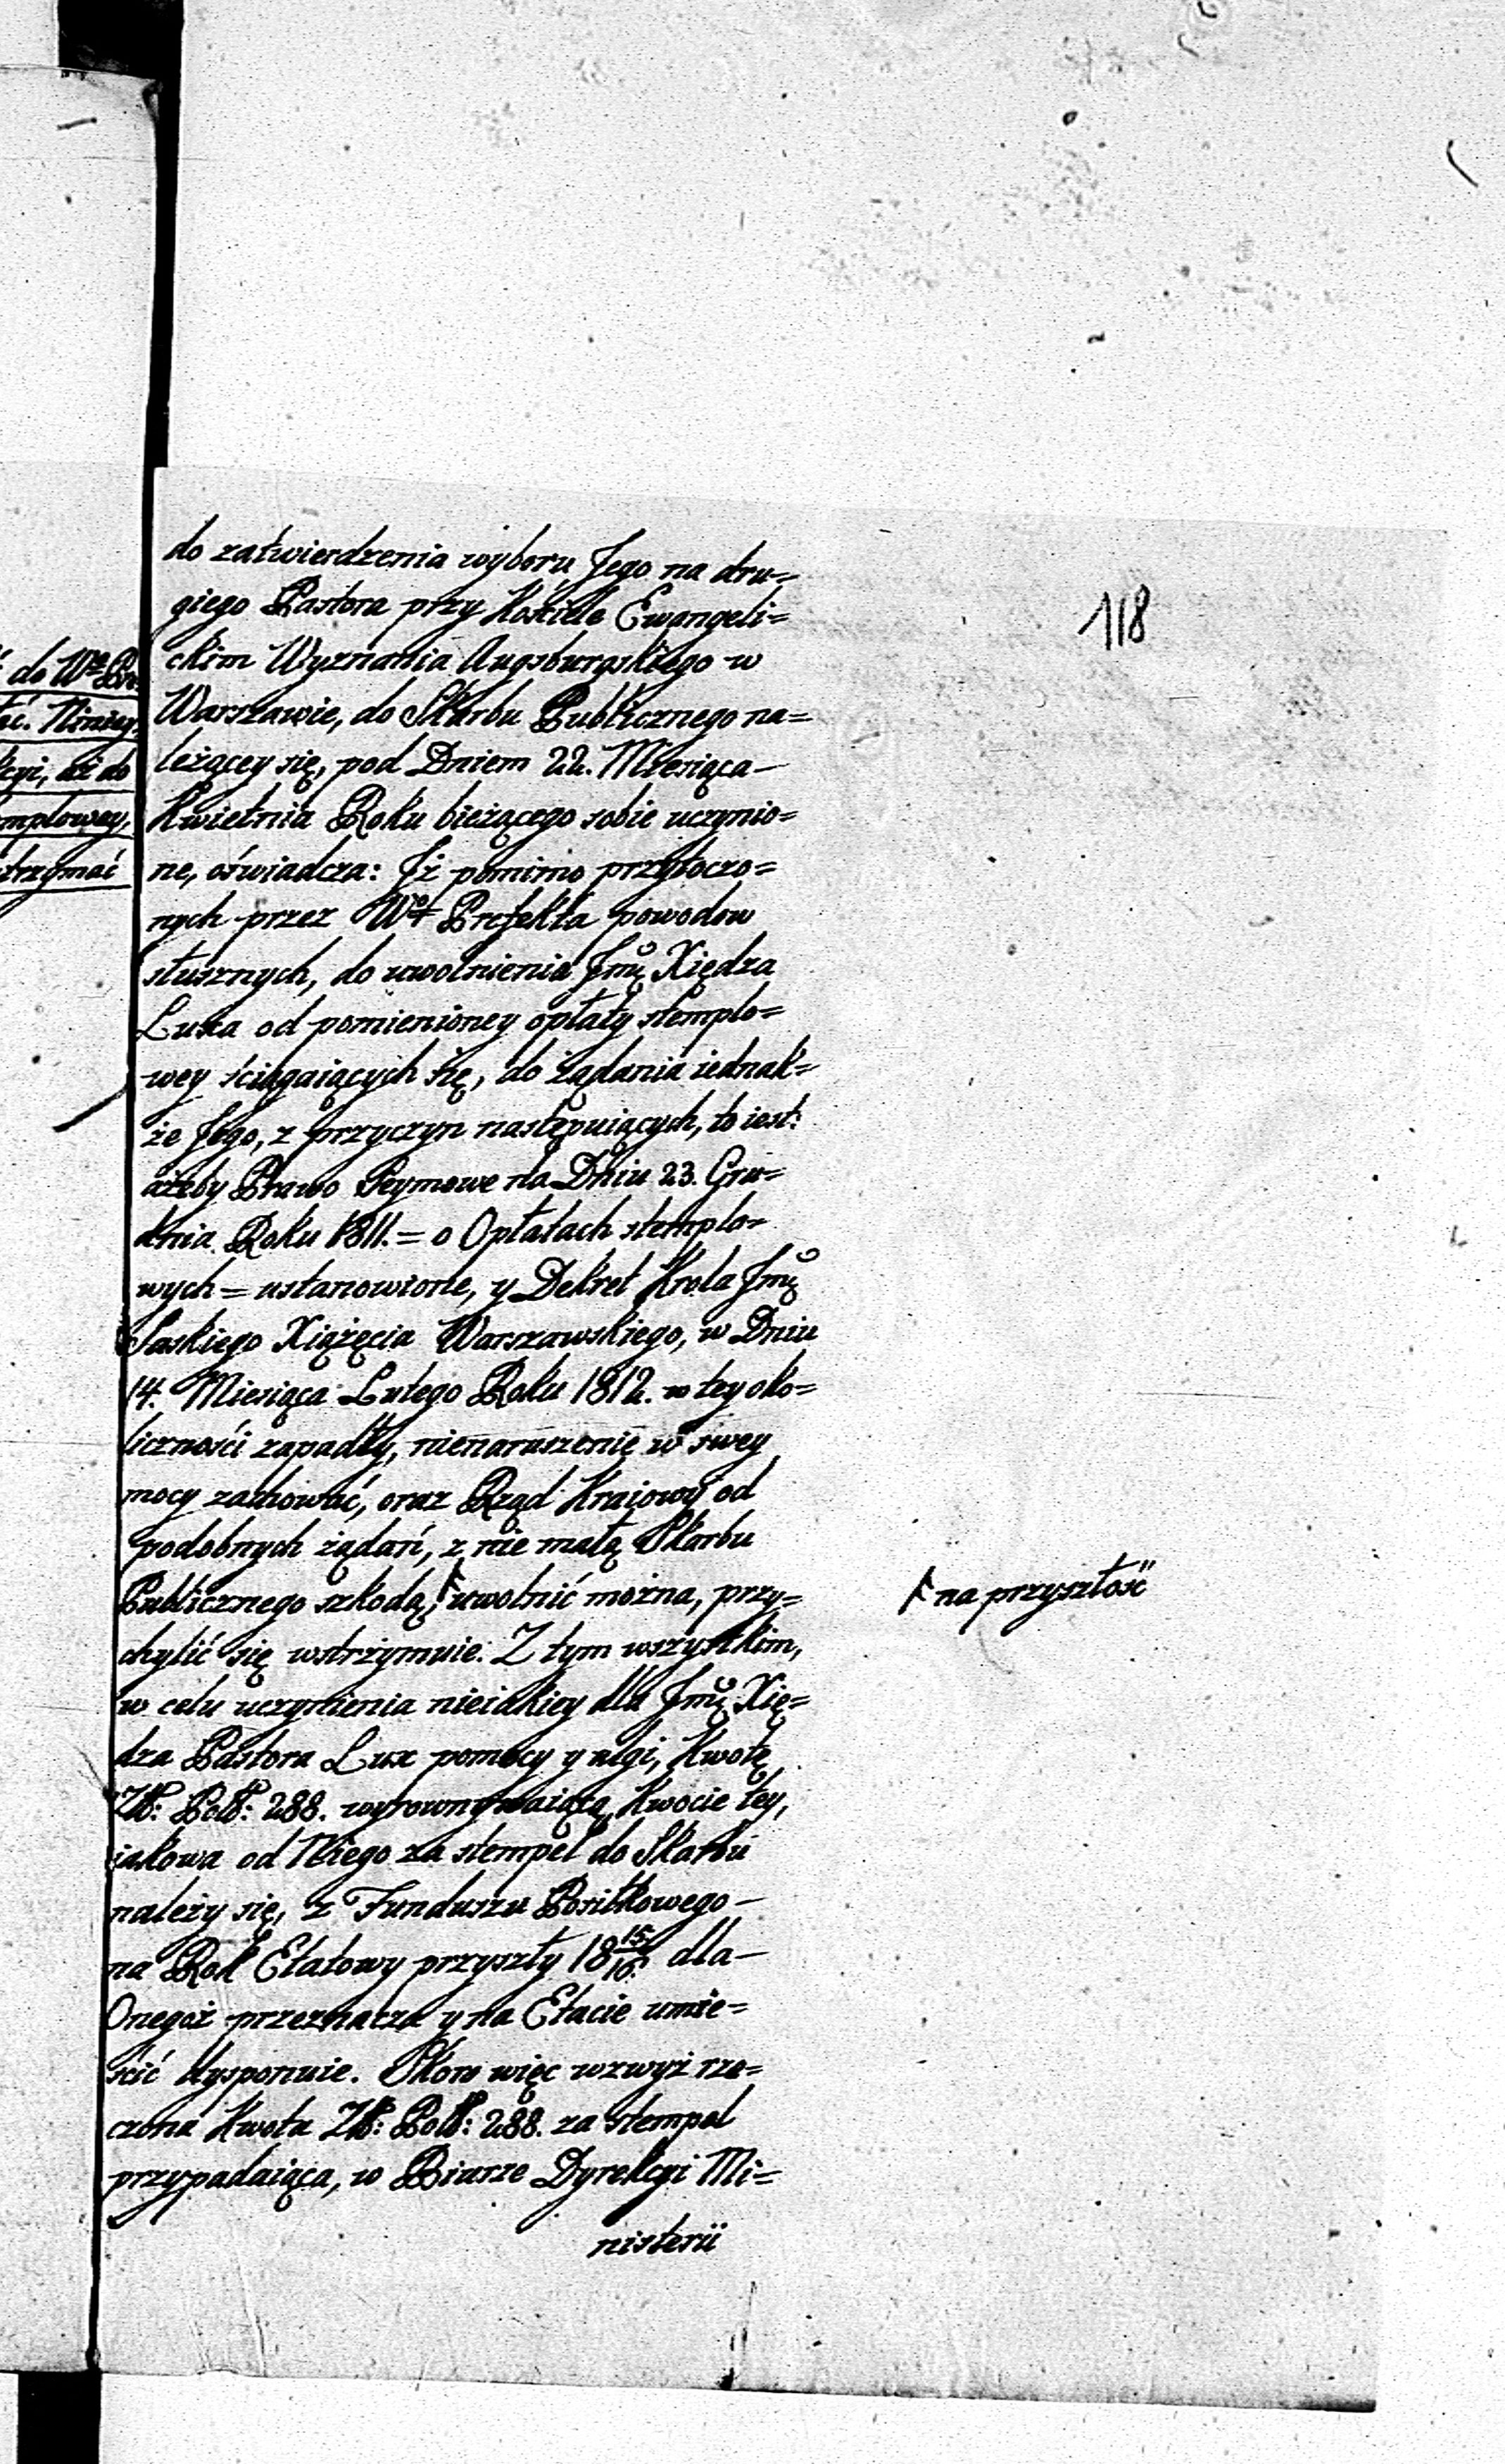 118
do zatwierdzenia wyboru Jego na dru=
giego Pastora przy Kościele Ewangeli=
ckim Wyznania Augsburgskiego w
Warszawie, do Skarbu Publicznego na=
leżącey się, pod Dniem 22. Miesiąca
Kwietnia Roku bieżącego sobie uczynio=
ne, oświadcza: Iż pomimo przytoczo=
nych przez Wo Prefekta powodow
słusznych, do uwolnienia Jmę Xiędza
Luxa od pomienioney opłaty stemplo=
wey ściągaiących się, do żądania iednak=
że Jego, z przyczyn następuiących, to iest:
ażeby Prawo Seymowe na Dniu 23. Gru=
dnia Roku 1811. = o Opłatach stemplo=
wych = ustanowione, y Dekret Krola Jmę
Saskiego Xiążęcia Warszawskiego, w Dniu
14. Miesiąca Lutego Roku 1812. w tey oko=
liczności zapadły, nienaruszenie w swey
mocy zachować, oraz Rząd Kraiowy od
podobnych żądań, z nie małą Skarbu
Publicznego szkodą, uwolnić można, przy=
na przyszłość
chylić się wstrzymuie. Z tym wszystkim,
w celu uczynienia nieiakiey dla Jmę Xię=
dza Pastora Lux pomocy y ulgi, Kwotę
Zł: Pol: 288. wyrownywaiącą Kwocie tey,
iakowa od Niego za stempel do Skarbu
należy się, z Funduszu Posiłkowego
na Rok Etatowy przyszły 18 15/16 dla
Onegoż przeznacza y na Etacie umie=
ścić dysponuie. Skoro więc wzwyż rze=
czona Kwota Zł: Pol: 288. za stempel
przypadaiąca, w Biurze Dyrekcyi Mi=
nisterii
do Wo Pr
kcyi, aż do
mplowey,
trzymać